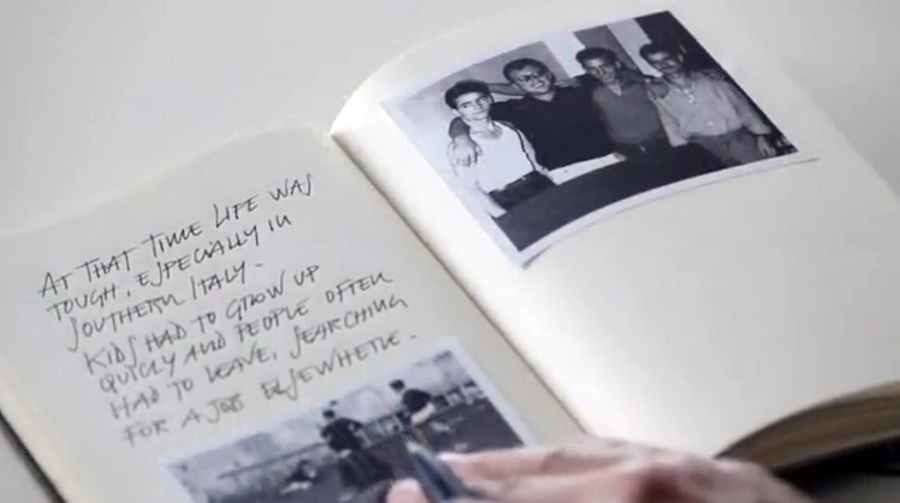 AT THAT TIME LIFE WAS
TOUGH, ESPECIALLY IN
SOUTHERN ITALY.
KIDS HAD TO GROW UP
QUICLY AND PEOPLE OFTEN
HAD TO LEAVE, SEARCHING
FOR A JOB ELSEWHERE.